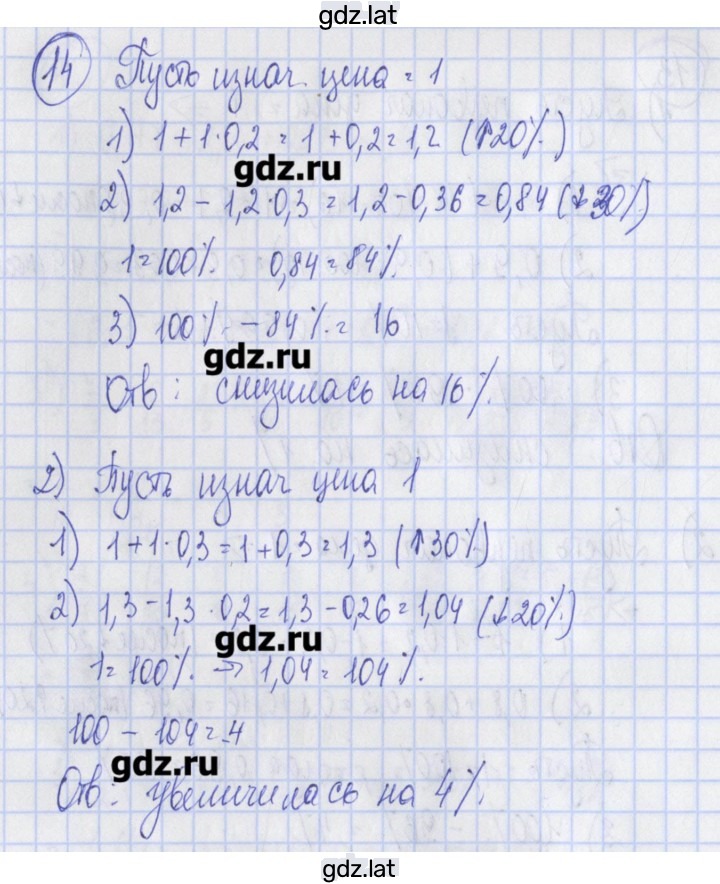 gdz.lat
14 Пусть изнач. цена = 1
1) 1 + 1·0,2 = 1 + 0,2 = 1,2 (↑20%)
gdz.ru
2) 1,2 - 1,2·0,3 = 1,2 - 0,36 = 0,84 (↓30%)
1 = 100% 0,84 = 84%.
3) 100% - 84% = 16
gdz.ru
Отв: снизилась на 16%.
2) Пусть изнач цена 1
1) 1 + 1·0,3 = 1 + 0,3 = 1,3 (↑30%)
2) 1,3 - 1,3·0,2 = 1,3 - 0,26 = 1,04 (↓20%)
gdz.ru
1 = 100% → 1,04 = 104%.
100 - 104 = -4
gdz.ru
Отв: увеличилась на 4%.
gdz.lat